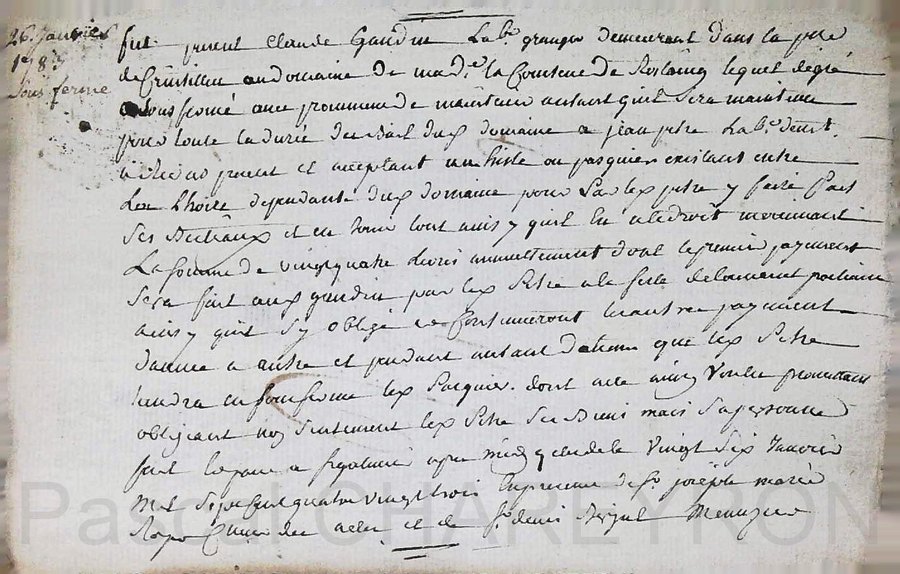 26 Janvier
1783
Sous ferme
fut present claude Gaudin Lab.r granger demeurant dans la psse
de Cruisilleu au domaine de mad.e la Comtesse de Rostaing lequel de gré
a sous fermé avec promesse de maintenir autant qu'il sera maintenu
pour toute la durée du Bail dud domaine a jean pitre Lab.r dem.t
present et acceptant un histe ou pasquier existant entre
L'hoire dependante dud domaine pour par led pitre y faire paitre
ses Bestiaux et en jouir tout ainsy quil en a le droit moiennant
La somme de vingt quatre Livres annuellement dont le premier payement
sera fait aud gaudin par led Pitre a la fete de la toussaint prochaine
ainsy quil s'y oblige et Continueront les autres payement
d'année a autre et pendant autant de tems que led Pitre
tiendra en sousferme led Pasquier. dont acte ainsy Voulu promettant
obligeant non seulement led Pitre ses Biens mais sa personne
fait lu passé a apres midy ce vingt six Janvier
Mil Sept cent quatre vingt trois En presence de s.r joseph marie
et de s.r denis
Pascal CHAREYRON